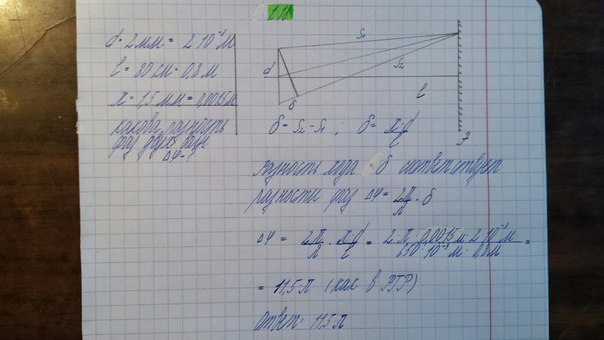 1.10
d = 2 мм = 2·10⁻³ м
l = 80 см = 0,8 м
x = 1,5 мм = 0,0015 м
какова разность
фаз двух волн
Δφ - ?
S₁
S₂
d
δ
l
Э
δ = S₂ - S₁ ; δ = x·d/l
разность хода δ соответствует
разности фаз Δφ = 2π/λ · δ
Δφ = 2π/λ · x·d/l = 2·π·0,0015 м·2·10⁻³ м / 650·10⁻⁹ м·0,8 м =
= 11,5 π (как в РГР)
ответ: 11,5 π